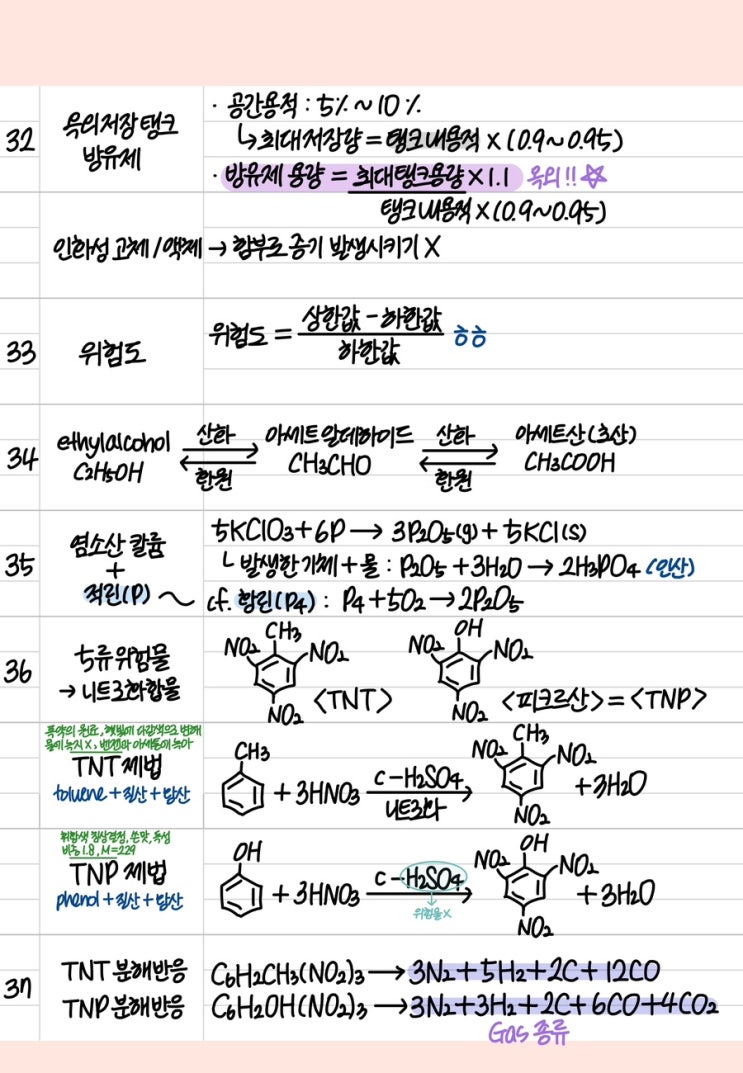 32
옥외저장탱크
방유제
· 공간용적 : 5% ~ 10%
↳ 최대저장량 = 탱크내용적 × (0.9~0.95)
· 방유제 용량 = 최대탱크용량 × 1.1 옥외!! ☆
탱크내용적 × (0.9~0.95)
인화성 고체/액체 → 함부로 증기 발생시키기 X
33
위험도
위험도 = 상한값 - 하한값
하한값
ㅎㅎ
34
ethylalcohol
C2H5OH
산화
환원
아세트알데하이드
CH3CHO
산화
환원
아세트산(초산)
CH3COOH
35
염소산 칼륨
+
적린(P)
5KClO3+6P → 3P2O5(g)+5KCl(s)
↳ 발생한 기체+물 : P2O5+3H2O → 2H3PO4 (인산)
cf. 황린(P4) : P4+5O2 → 2P2O5
36
5류 위험물
→ 니트로화합물
CH3
NO2 NO2
NO2
<TNT>
OH
NO2 NO2
NO2
<피크르산> = <TNP>
폭약의 원료, 햇빛에 다갈색으로 변해
물에 녹지 X, 벤젠과 아세톤에 녹아
TNT 제법
toluene+질산+담산
CH3
+ 3HNO3
c-H2SO4
니트로화
CH3
NO2 NO2
NO2
+3H2O
휘황색 침상결정, 쓴맛, 독성
비중 1.8, M=229
TNP 제법
phenol+질산+담산
OH
+ 3HNO3
c-H2SO4
위험물X
OH
NO2 NO2
NO2
+3H2O
37
TNT 분해반응
C6H2CH3(NO2)3 → 3N2+5H2+2C+12CO
TNP 분해반응
C6H2OH(NO2)3 → 3N2+3H2+2C+6CO+4CO2
Gas 종류